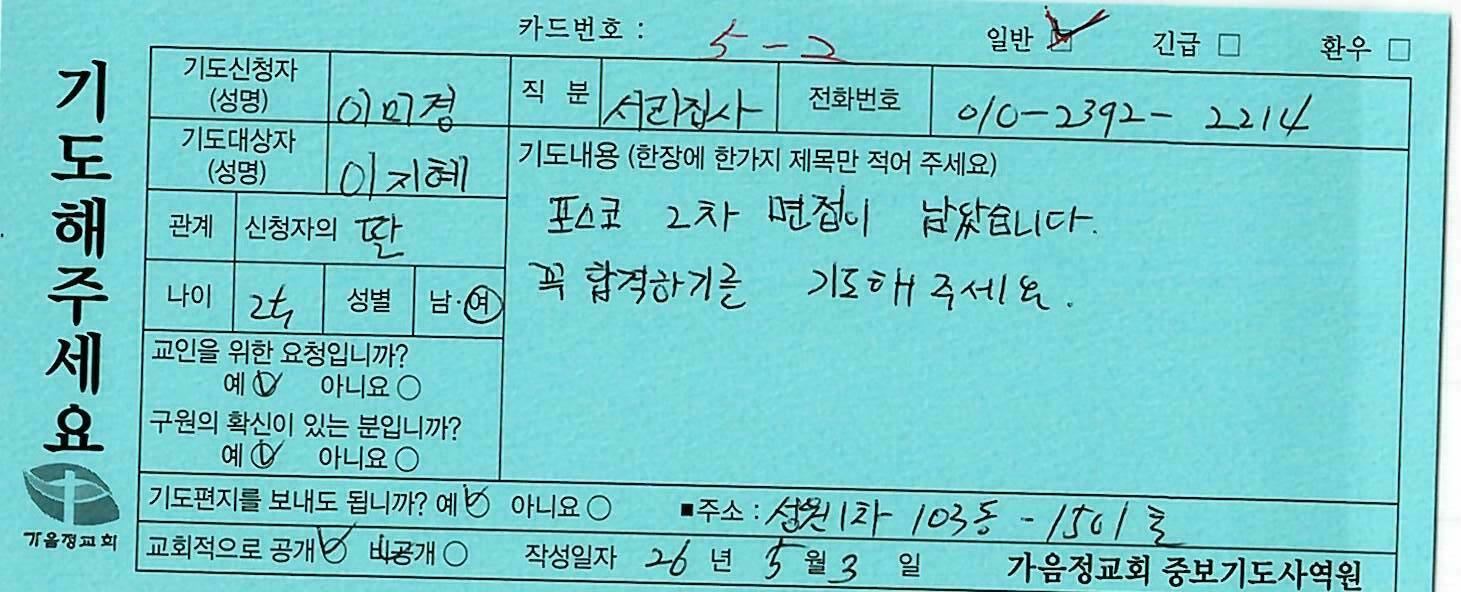 카드번호 : 5-2 일반 ☑ 긴급 □ 환우 □
기도해주세요
기도신청자 (성명) 이미경 직 분 서리집사 전화번호 010-2392-2214
기도대상자 (성명) 이지혜
관계 신청자의 딸
나이 성별 남·여
교인을 위한 요청입니까?
예 ○ 아니요 ○
구원의 확신이 있는 분입니까?
예 ○ 아니요 ○
기도내용 (한장에 한가지 제목만 적어 주세요)
포스코 2차 면접이 남았습니다.
꼭 합격하기를 기도해 주세요.
기도편지를 보내도 됩니까? 예 ○ 아니요 ○ ■주소 : 성원1차 103동 - 1501호
교회적으로 공개 ○ 비공개 ○ 작성일자 26 년 5 월 3 일 가음정교회 중보기도사역원
가음정교회